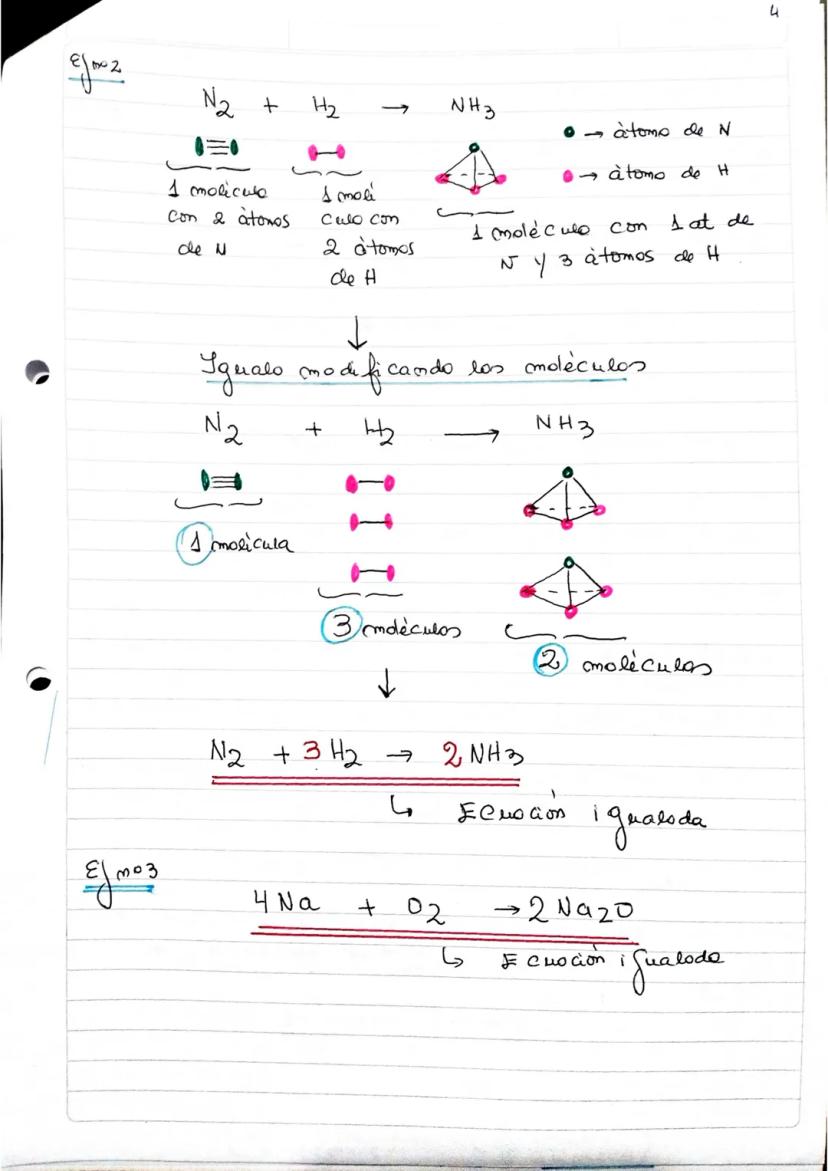 4
Ej nº 2
N2 + H2 → NH3
→ àtomo de N
→ àtomo de H
1 molècula con 2 àtomos de N
1 molécula con 2 àtomos de H
1 molécula con 1 at de N y 3 àtomos de H
↓
Igualo modificando las molèculas
N2 + H2 → NH3
1 molècula
3 molèculas
2 molèculas
↓
N2 + 3 H2 → 2 NH3
↳ Ecuaciòn igualada
Ej nº 3
4 Na + O2 → 2 Na2O
↳ Ecuaciòn igualada